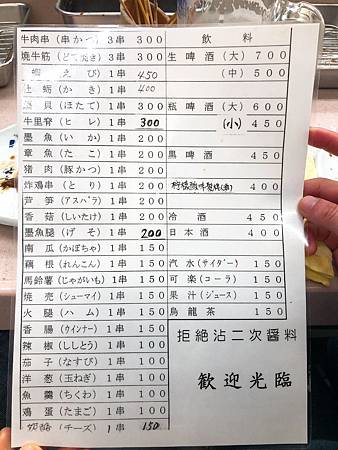 牛肉串(串かつ) 3串 300
燒牛筋(どて焼き) 3串 300
蝦(えび) 1串 450
牡蛎(かき) 1串 400
貝(ほたて) 1串 300
牛里脊(ヒレ) 1串 300
墨魚(いか) 1串 200
章魚(たこ) 1串 200
猪肉(豚かつ) 1串 200
炸鶏串(とり) 1串 200
芦笋(アスパラ) 1串 200
香菇(しいたけ) 1串 200
墨魚腿(げそ) 1串 200
南瓜(かぼちゃ) 1串 150
藕根(れんこん) 1串 150
馬鈴薯(じゃがいも) 1串 150
焼売(シューマイ) 1串 150
火腿(ハム) 1串 150
香腸(ウインナー) 1串 150
辣椒(ししとう) 1串 100
茄子(なすび) 1串 100
洋葱(玉ねぎ) 1串 100
魚羹(ちくわ) 1串 100
鶏蛋(たまご) 1串 100
(チーズ) 1串 150
飲料
生啤酒(大) 700
(中) 500
瓶啤酒(大) 600
(小) 450
黒啤酒 450
400
冷酒 450
日本酒 400
汽水(サイダー) 150
可楽(コーラ) 150
果汁(ジュース) 150
烏龍茶 150
拒絶沾二次醤料
歓迎光臨